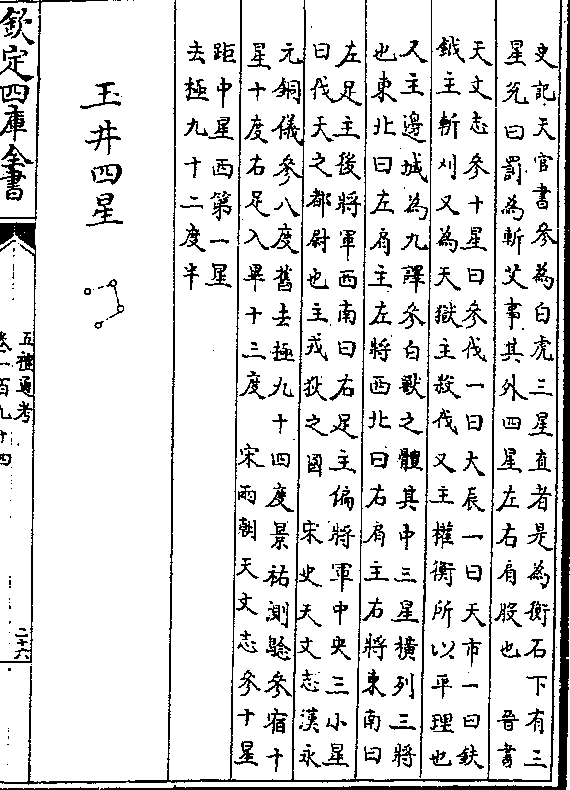 史記天官書參為白虎三星直者是為衡石下有三
星兊曰罰為斬艾事其外四星左右肩股也　晉書
天文志參十星曰參伐一曰大辰一曰天市一曰鈇
鉞主斬刈又為天獄主殺伐又主權衡所以平理也
又主邊城為九譯參白獸之體其中三星橫列三將
也東北曰左肩主左將西北曰右肩主右將東南曰
左足主後將軍西南曰右足主偏將軍中央三小星
曰伐天之都尉也主戎狄之國　宋史天文志漢永
元銅儀參八度舊去極九十四度景祐測驗參宿十
星十度右足入畢十三度　宋兩朝天文志參十星
距中星西第一星
去極九十二度半
玉井四星
欽定四庫全書
五禮通考
卷一百九十四
二十六